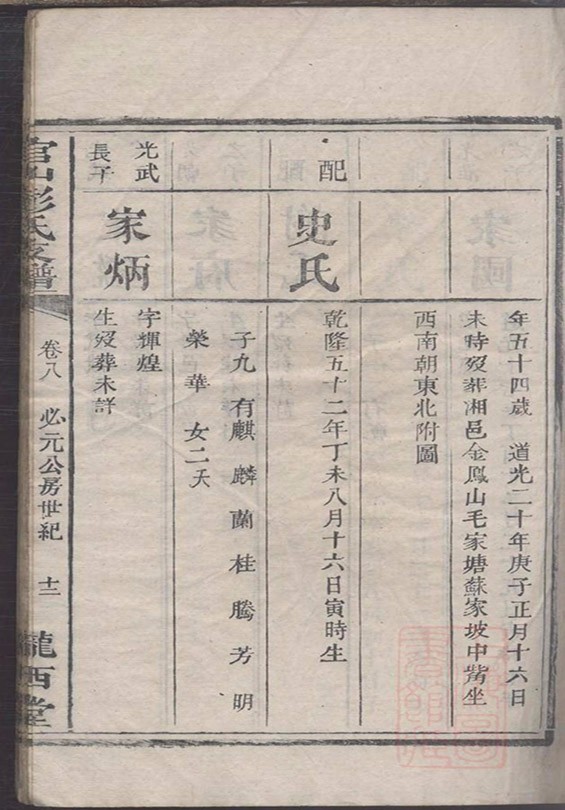 年五十四歲 道光二十年庚子正月十六日
未時歿葬湘邑金鳳山毛家塘蘇家坡中嘴坐
西南朝東北附圖
配
史氏
乾隆五十二年丁未八月十六日寅時生
子九 有麒 麟 蘭 桂 騰 芳 明
榮 華 女二夭
光武
長子
家炳
字輝煌
生歿葬未詳
官山彭氏支譜
卷八 必元公房世紀 十二
隴西堂